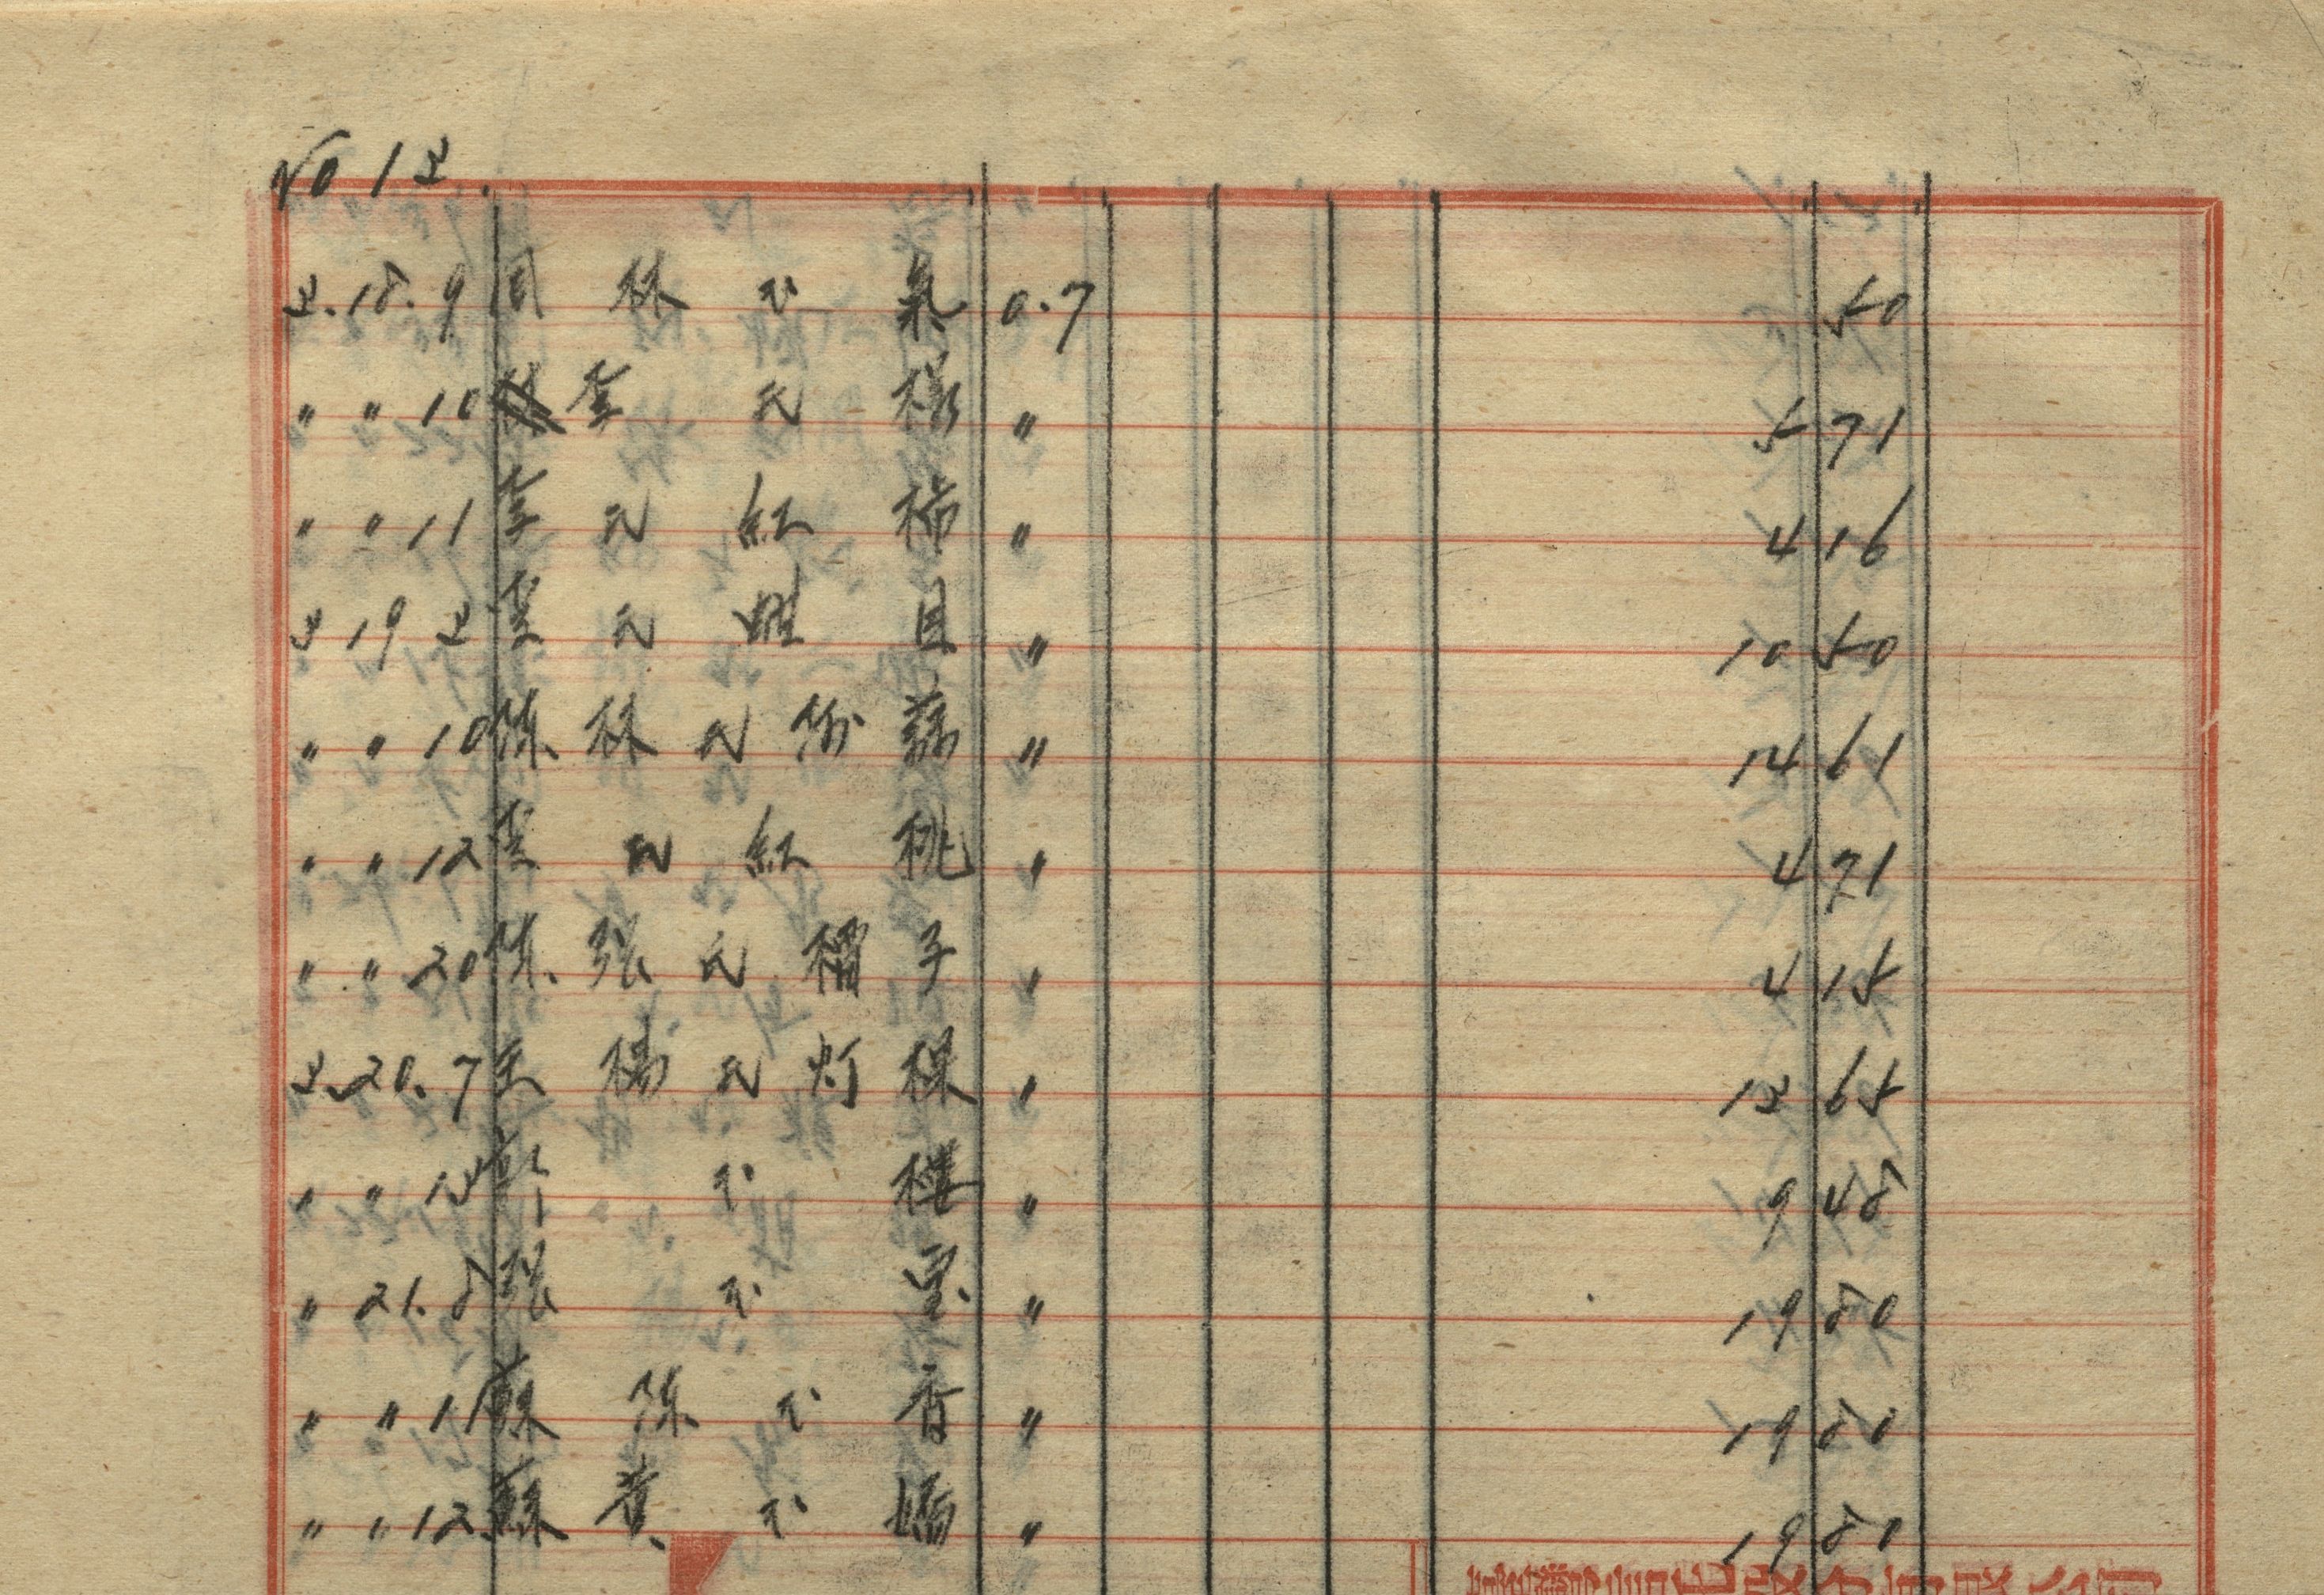 No 13
3.18.9 周林氏氣 0.7 50
〃 〃 10 李氏様 〃 5 71
〃 〃 11 李氏紅柿 〃 4 16
3 19 3 李氏 目 〃 10 50
〃 〃 10 陳林氏 〃 14 61
〃 〃 12 李氏紅桃 〃 4 71
〃 〃 20 陳張氏 子 〃 4 15
3.20.7 王楊氏灯 〃 13 65
〃 〃 13 許氏 〃 9 48
〃 21.8 張氏宝 〃 19 80
〃 〃 11 蘇陳氏香 〃 19 80
〃 〃 12 蘇黄氏 〃 19 80